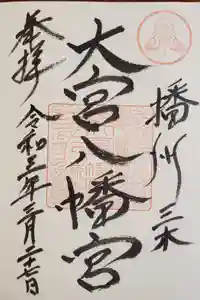 播州三木
大宮八幡宮
奉拝
令和三年三月二十七日